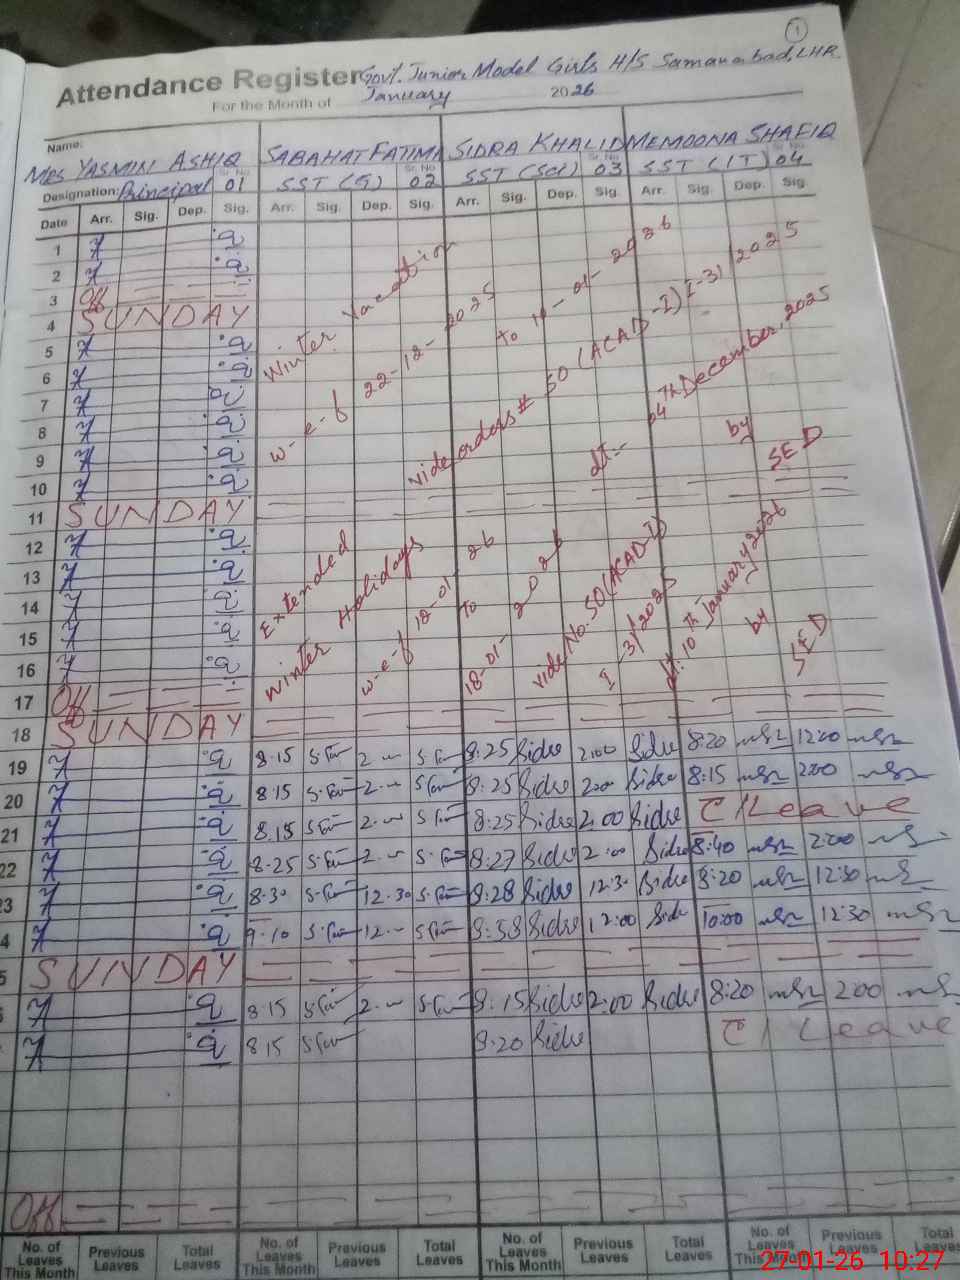 1
Attendance Register Govt. Junior Model Girls H/S Samanabad, LHR.
For the Month of January 2026
Name:
Mrs YASMIN ASHIQ SABAHAT FATIMA SIDRA KHALID MEMOONA SHAFIQ
Designation: Principal Sr. No 01 SST (G) Sr. No 02 SST (Sci) Sr. No 03 SST (IT) Sr. No 04
Date Arr. Sig. Dep. Sig. Arr. Sig. Dep. Sig. Arr. Sig. Dep. Sig. Arr. Sig. Dep. Sig.
1
2
3 Off
4 SUNDAY
5
6
7
8
9
10
11 SUNDAY
12
13
14
15
16
17 Off
18 SUNDAY
Winter Vacation
w-e-f 22-12-2025 To 10-01-2026
vide orders # SO (ACAD-I) I-31/2025
dt:- 04th December, 2025
by SED
Extended
Winter Holidays
w-e-f 12-01-26
To
18-01-2026
vide No. SO (ACAD-I)
I-31/2025
dt: 10th January 2026
by SED
19 8.15 2 8:25 Sidra 2:00 Sidra 8:20 12:00
20 8:15 2 8:25 Sidra 2:00 Sidra 8:15 2:00
21 8.15 2 8:25 Sidra 2:00 Sidra C/Leave
22 8.25 2 8:27 Sidra 2:00 Sidra 8:40 2:00
3 8:30 12.30 8:28 Sidra 12:30 Sidra 8:20 12:30
4 9-10 12 8:58 Sidra 12:00 Sidra 10:00 12:30
5 SUNDAY
8:15 2 8:15 Sidra 2:00 Sidra 8:20 2:00
8.15 8:20 Sidra C/Leave
Off
No. of Leaves This Month Previous Leaves Total Leaves No. of Leaves This Month Previous Leaves Total Leaves No. of Leaves This Month Previous Leaves Total Leaves No. of Leaves This Month Previous Leaves Total Leaves
27-01-26 10:27